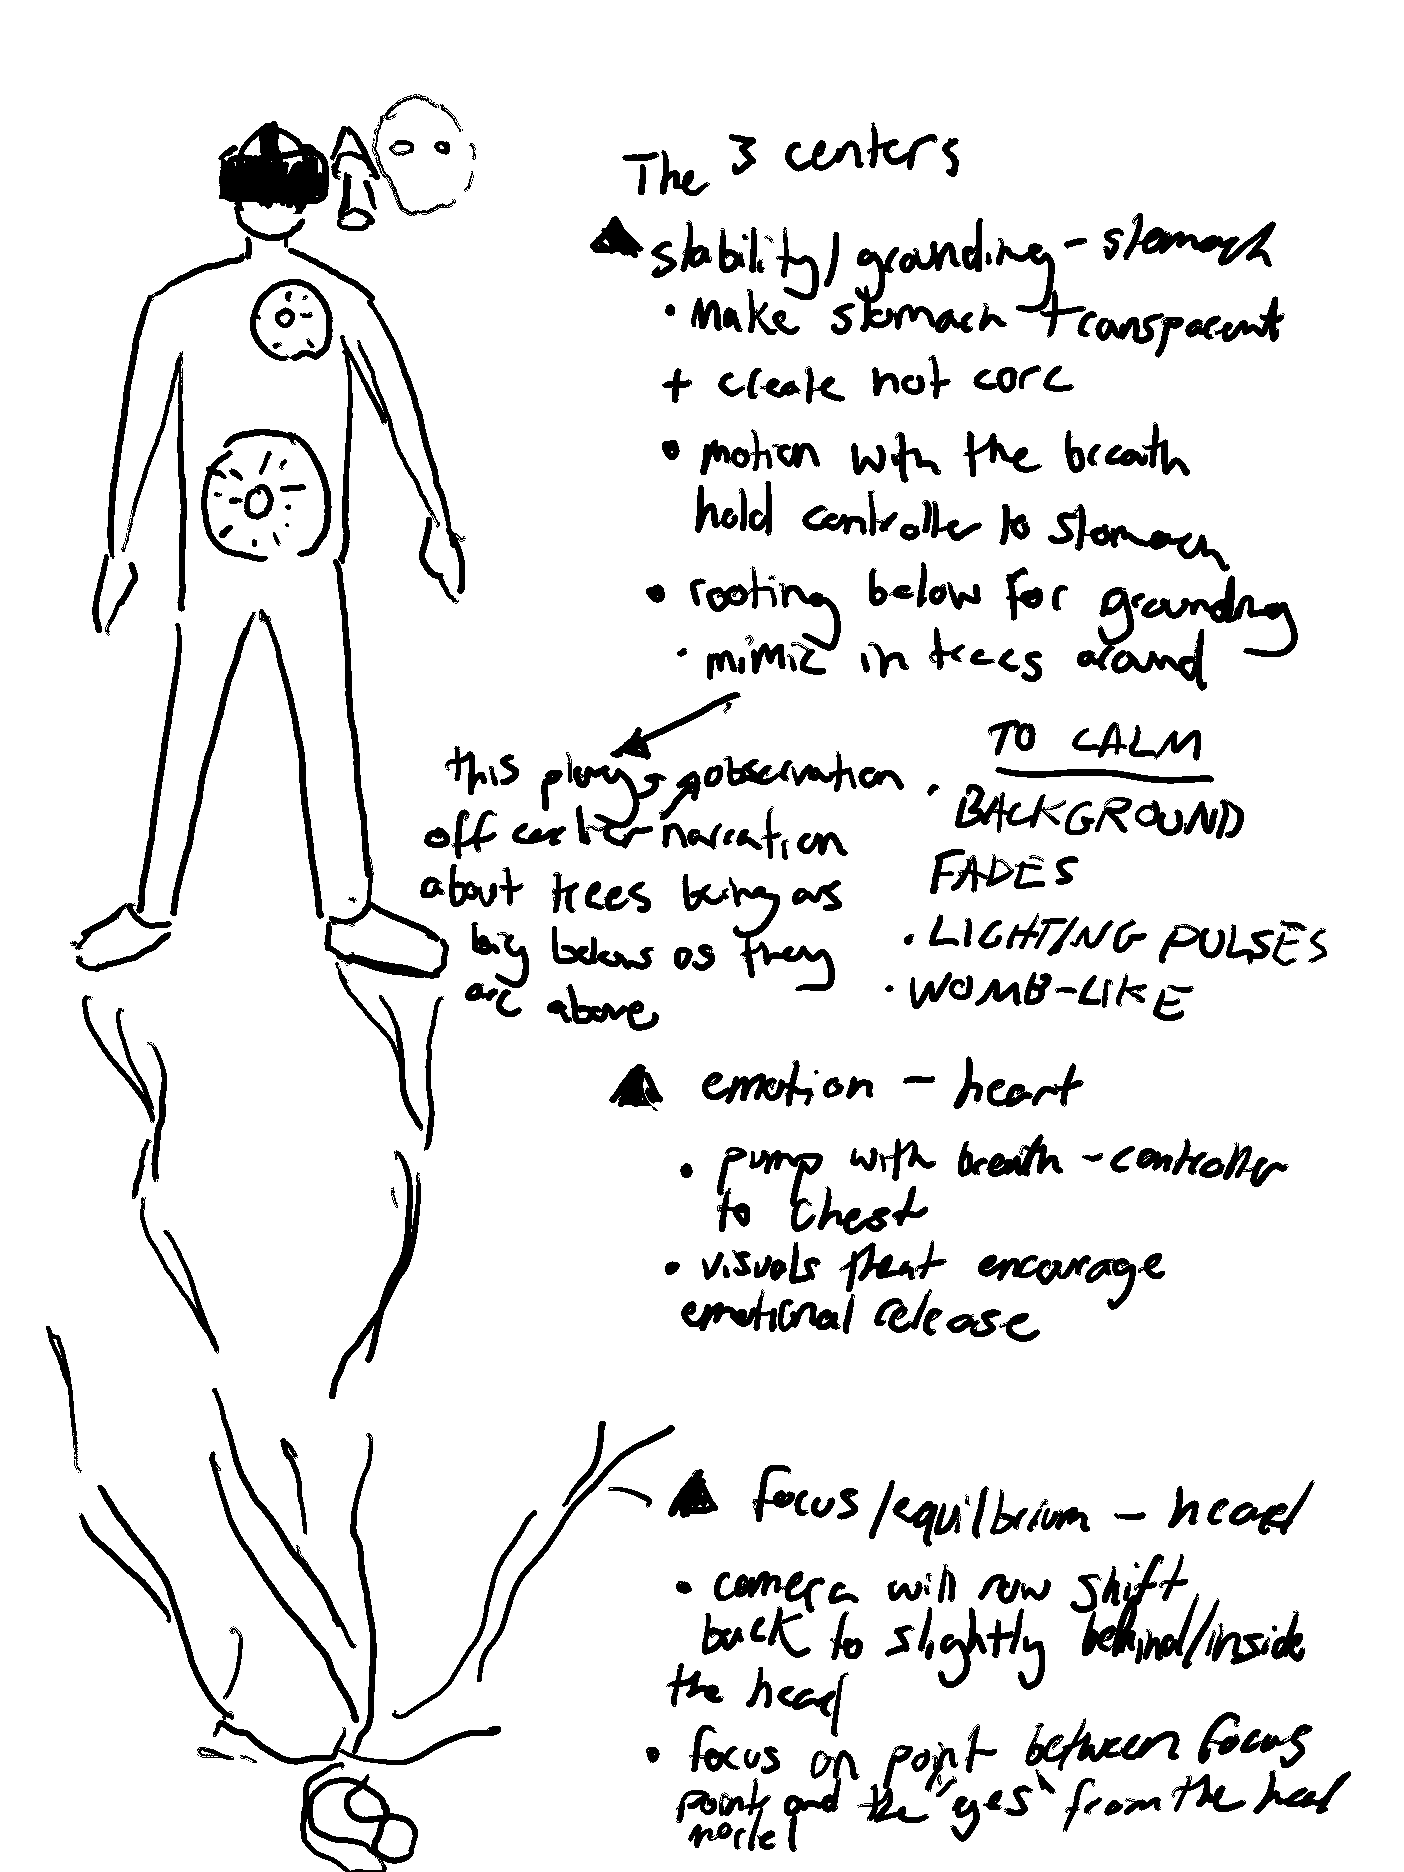 The 3 centers
stability/grounding - stomach
• Make stomach transparent
+ create hot core
• motion with the breath
hold controller to stomach
• rooting below for grounding
• mimic in trees around
this plays observation
off earlier narration
about trees being as
big below as they
are above
TO CALM
• BACKGROUND
FADES
• LIGHTING PULSES
• WOMB-LIKE
emotion - heart
• pump with breath - controller
to chest
• visuals that encourage
emotional release
focus/equilibrium - head
• camera will now shift
back to slightly behind/inside
the head
• focus on point between focus
point and the "eyes" from the head
model